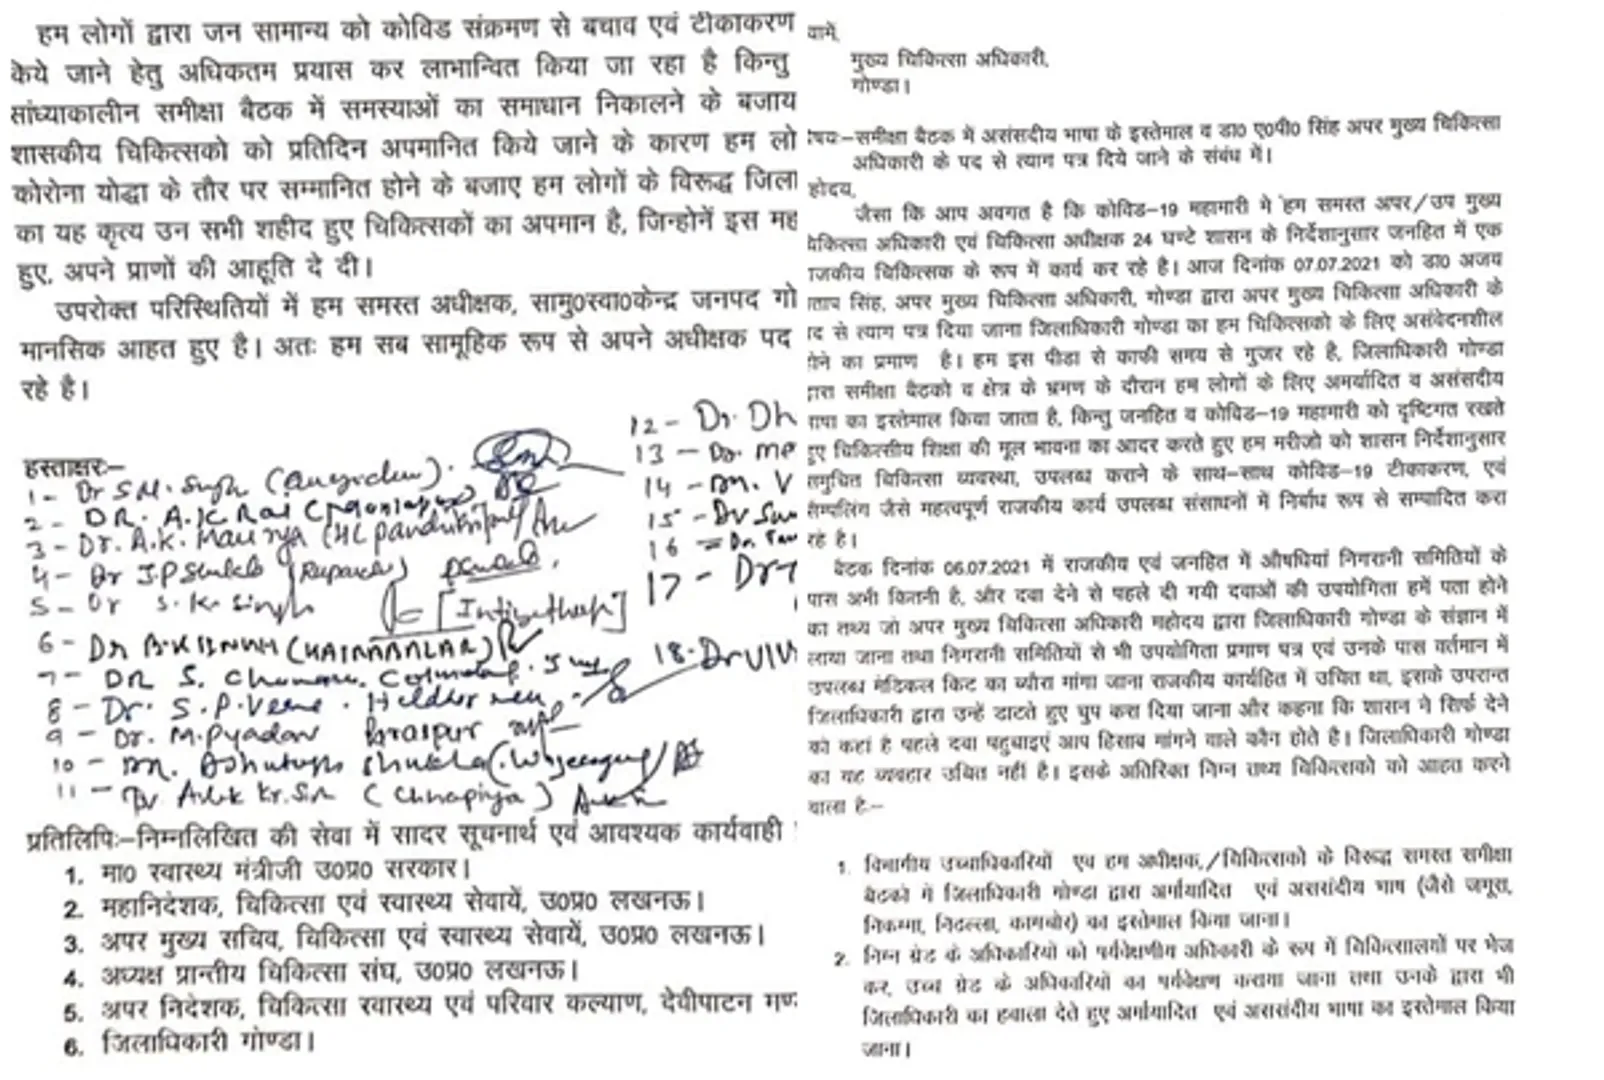 हम लोगों द्वारा जन सामान्य को कोविड संक्रमण से बचाव एवं टीकाकरण
केये जाने हेतु अधिकतम प्रयास कर लाभान्वित किया जा रहा है किन्तु
सांध्याकालीन समीक्षा बैठक में समस्याओं का समाधान निकालने के बजाय
शासकीय चिकित्सको को प्रतिदिन अपमानित किये जाने के कारण हम लो
कोरोना योद्धा के तौर पर सम्मानित होने के बजाए हम लोगों के विरूद्ध जिला
का यह कृत्य उन सभी शहीद हुए चिकित्सकों का अपमान है, जिन्होनें इस मह
हुए, अपने प्राणों की आहूति दे दी।
उपरोक्त परिस्थितियों में हम समस्त अधीक्षक, सामु0स्वा0केन्द्र जनपद गो
मानसिक आहत हुए है। अतः हम सब सामूहिक रूप से अपने अधीक्षक पद
रहे है।
हस्ताक्षरः–
1- Dr S.M. Singh
2- DR. A.K. Rai
3- Dr. A.K. Maurya
4- Dr J.P Shukla (Rupaidih)
5- Dr S. K. Singh
6- Dr
7- DR S.
8- Dr. S.P. Verma
9- Dr. M.P yadav Paraspur
10- Dr. Ashutosh Shukla (Wazeerganj)
11- Dr Alok Kr. (Chhapiya)
12- Dr. Dh
13- Dr. MP
14- Dr. V
15- Dr Su
16 Dr.
17- Dr
18. Dr VIV
प्रतिलिपिः–निम्नलिखित की सेवा में सादर सूचनार्थ एवं आवश्यक कार्यवाही
1. मा0 स्वास्थ्य मंत्रीजी उ0प्र0 सरकार।
2. महानिदेशक, चिकित्सा एवं स्वास्थ्य सेवायें, उ0प्र0 लखनऊ।
3. अपर मुख्य सचिव, चिकित्सा एवं स्वास्थ्य सेवायें, उ0प्र0 लखनऊ।
4. अध्यक्ष प्रान्तीय चिकित्सा संघ, उ0प्र0 लखनऊ।
5. अपर निदेशक, चिकित्सा स्वास्थ्य एवं परिवार कल्याण, देवीपाटन मण
6. जिलाधिकारी गोण्डा।
वामें,
मुख्य चिकित्सा अधिकारी,
गोण्डा।
षयः–समीक्षा बैठक में असंसदीय भाषा के इस्तेमाल व डा0 ए0पी0 सिंह अपर मुख्य चिकित्सा
अधिकारी के पद से त्याग पत्र दिये जाने के संबंध में।
होदय,
जैसा कि आप अवगत है कि कोविड–19 महामारी मे हम समस्त अपर/उप मुख्य
चिकित्सा अधिकारी एवं चिकित्सा अधीक्षक 24 घण्टे शासन के निर्देशानुसार जनहित में एक
राजकीय चिकित्सक के रूप में कार्य कर रहे है। आज दिनांक 07.07.2021 को डा0 अजय
प्रताप सिंह, अपर मुख्य चिकित्सा अधिकारी, गोण्डा द्वारा अपर मुख्य चिकित्सा अधिकारी के
पद से त्याग पत्र दिया जाना जिलाधिकारी गोण्डा का हम चिकित्सको के लिए असंवेदनशील
होने का प्रमाण है। हम इस पीडा से काफी समय से गुजर रहे है, जिलाधिकारी गोण्डा
द्वारा समीक्षा बैठको व क्षेत्र के भ्रमण के दौरान हम लोगों के लिए अमर्यादित व असंसदीय
भाषा का इस्तेमाल किया जाता है, किन्तु जनहित व कोविड–19 महामारी को दृष्टिगत रखते
हुए चिकित्सीय शिक्षा की मूल भावना का आदर करते हुए हम मरीजो को शासन निर्देशानुसार
समुचित चिकित्सा व्यवस्था, उपलब्ध कराने के साथ–साथ कोविड–19 टीकाकरण, एवं
सैम्पलिंग जैसे महत्वपूर्ण राजकीय कार्य उपलब्ध संसाधनों में निर्वाध रूप से सम्पादित करा
रहे है।
बैठक दिनांक 06.07.2021 में राजकीय एवं जनहित में औषधियां निगरानी समितियों के
पास अभी कितनी है, और दवा देने से पहले दी गयी दवाओं की उपयोगिता हमें पता होने
का तथ्य जो अपर मुख्य चिकित्सा अधिकारी महोदय द्वारा जिलाधिकारी गोण्डा के संज्ञान में
लाया जाना तथा निगरानी समितियों से भी उपयोगिता प्रमाण पत्र एवं उनके पास वर्तमान में
उपलब्ध मेडिकल किट का ब्यौरा मांगा जाना राजकीय कार्यहित में उचित था, इसके उपरान्त
जिलाधिकारी द्वारा उन्हें डाटते हुए चुप करा दिया जाना और कहना कि शासन ने सिर्फ देने
को कहां है पहले दवा पहुचाइएं आप हिसाब मांगने वाले कौन होते है। जिलाधिकारी गोण्डा
का यह व्यवहार उचित नहीं है। इसके अतिरिक्त निम्न तथ्य चिकित्सको को आहत करने
वाला है:–
1. विभागीय उच्चाधिकारियों एव हम अधीक्षक,/चिकित्सको के विरूद्ध समस्त समीक्षा
बैठको में जिलाधिकारी गोण्डा द्वारा अर्मायादित एवं असंसदीय भाष (जैसे जमूरा,
निकम्मा, निठल्ला, कामचोर) का इस्तेमाल किया जाना।
2. निम्न ग्रेड के अधिकारियों को पर्यवेक्षणीय अधिकारी के रूप में चिकित्सालयों पर भेज
कर, उच्च ग्रेड के अधिकारियों का पर्यवेक्षण कराया जाना तथा उनके द्वारा भी
जिलाधिकारी का हवाला देते हुए अर्मायादित एवं असंसदीय भाषा का इस्तेमाल किया
जाना।